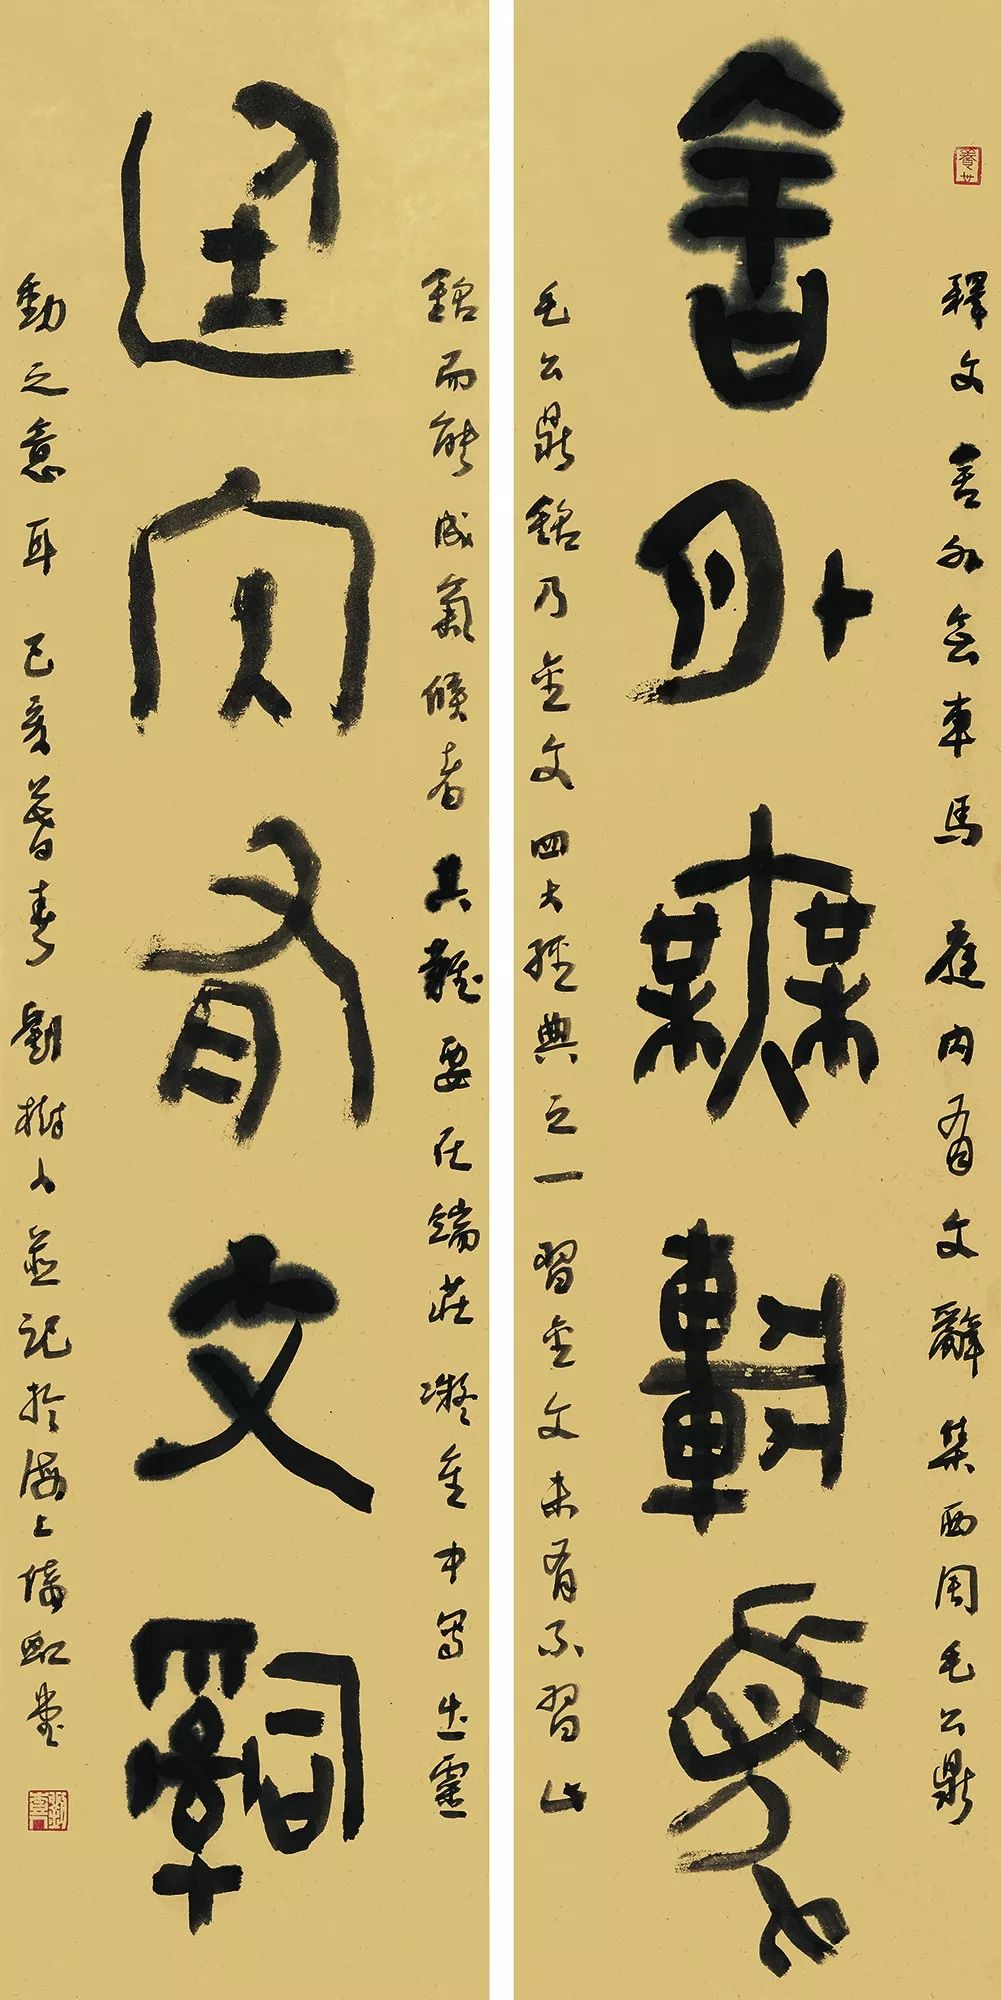 釋文舍外無車馬庭內有文辭集西周毛公鼎
舍外無車馬
毛公鼎銘乃金文四大經典之一習金文未有不習此
銘而能成氣候者其難要在端莊凝重中寫出靈
廷內有文辭
動之意耳己亥暮春劉樹人並記於海上倚虹堂